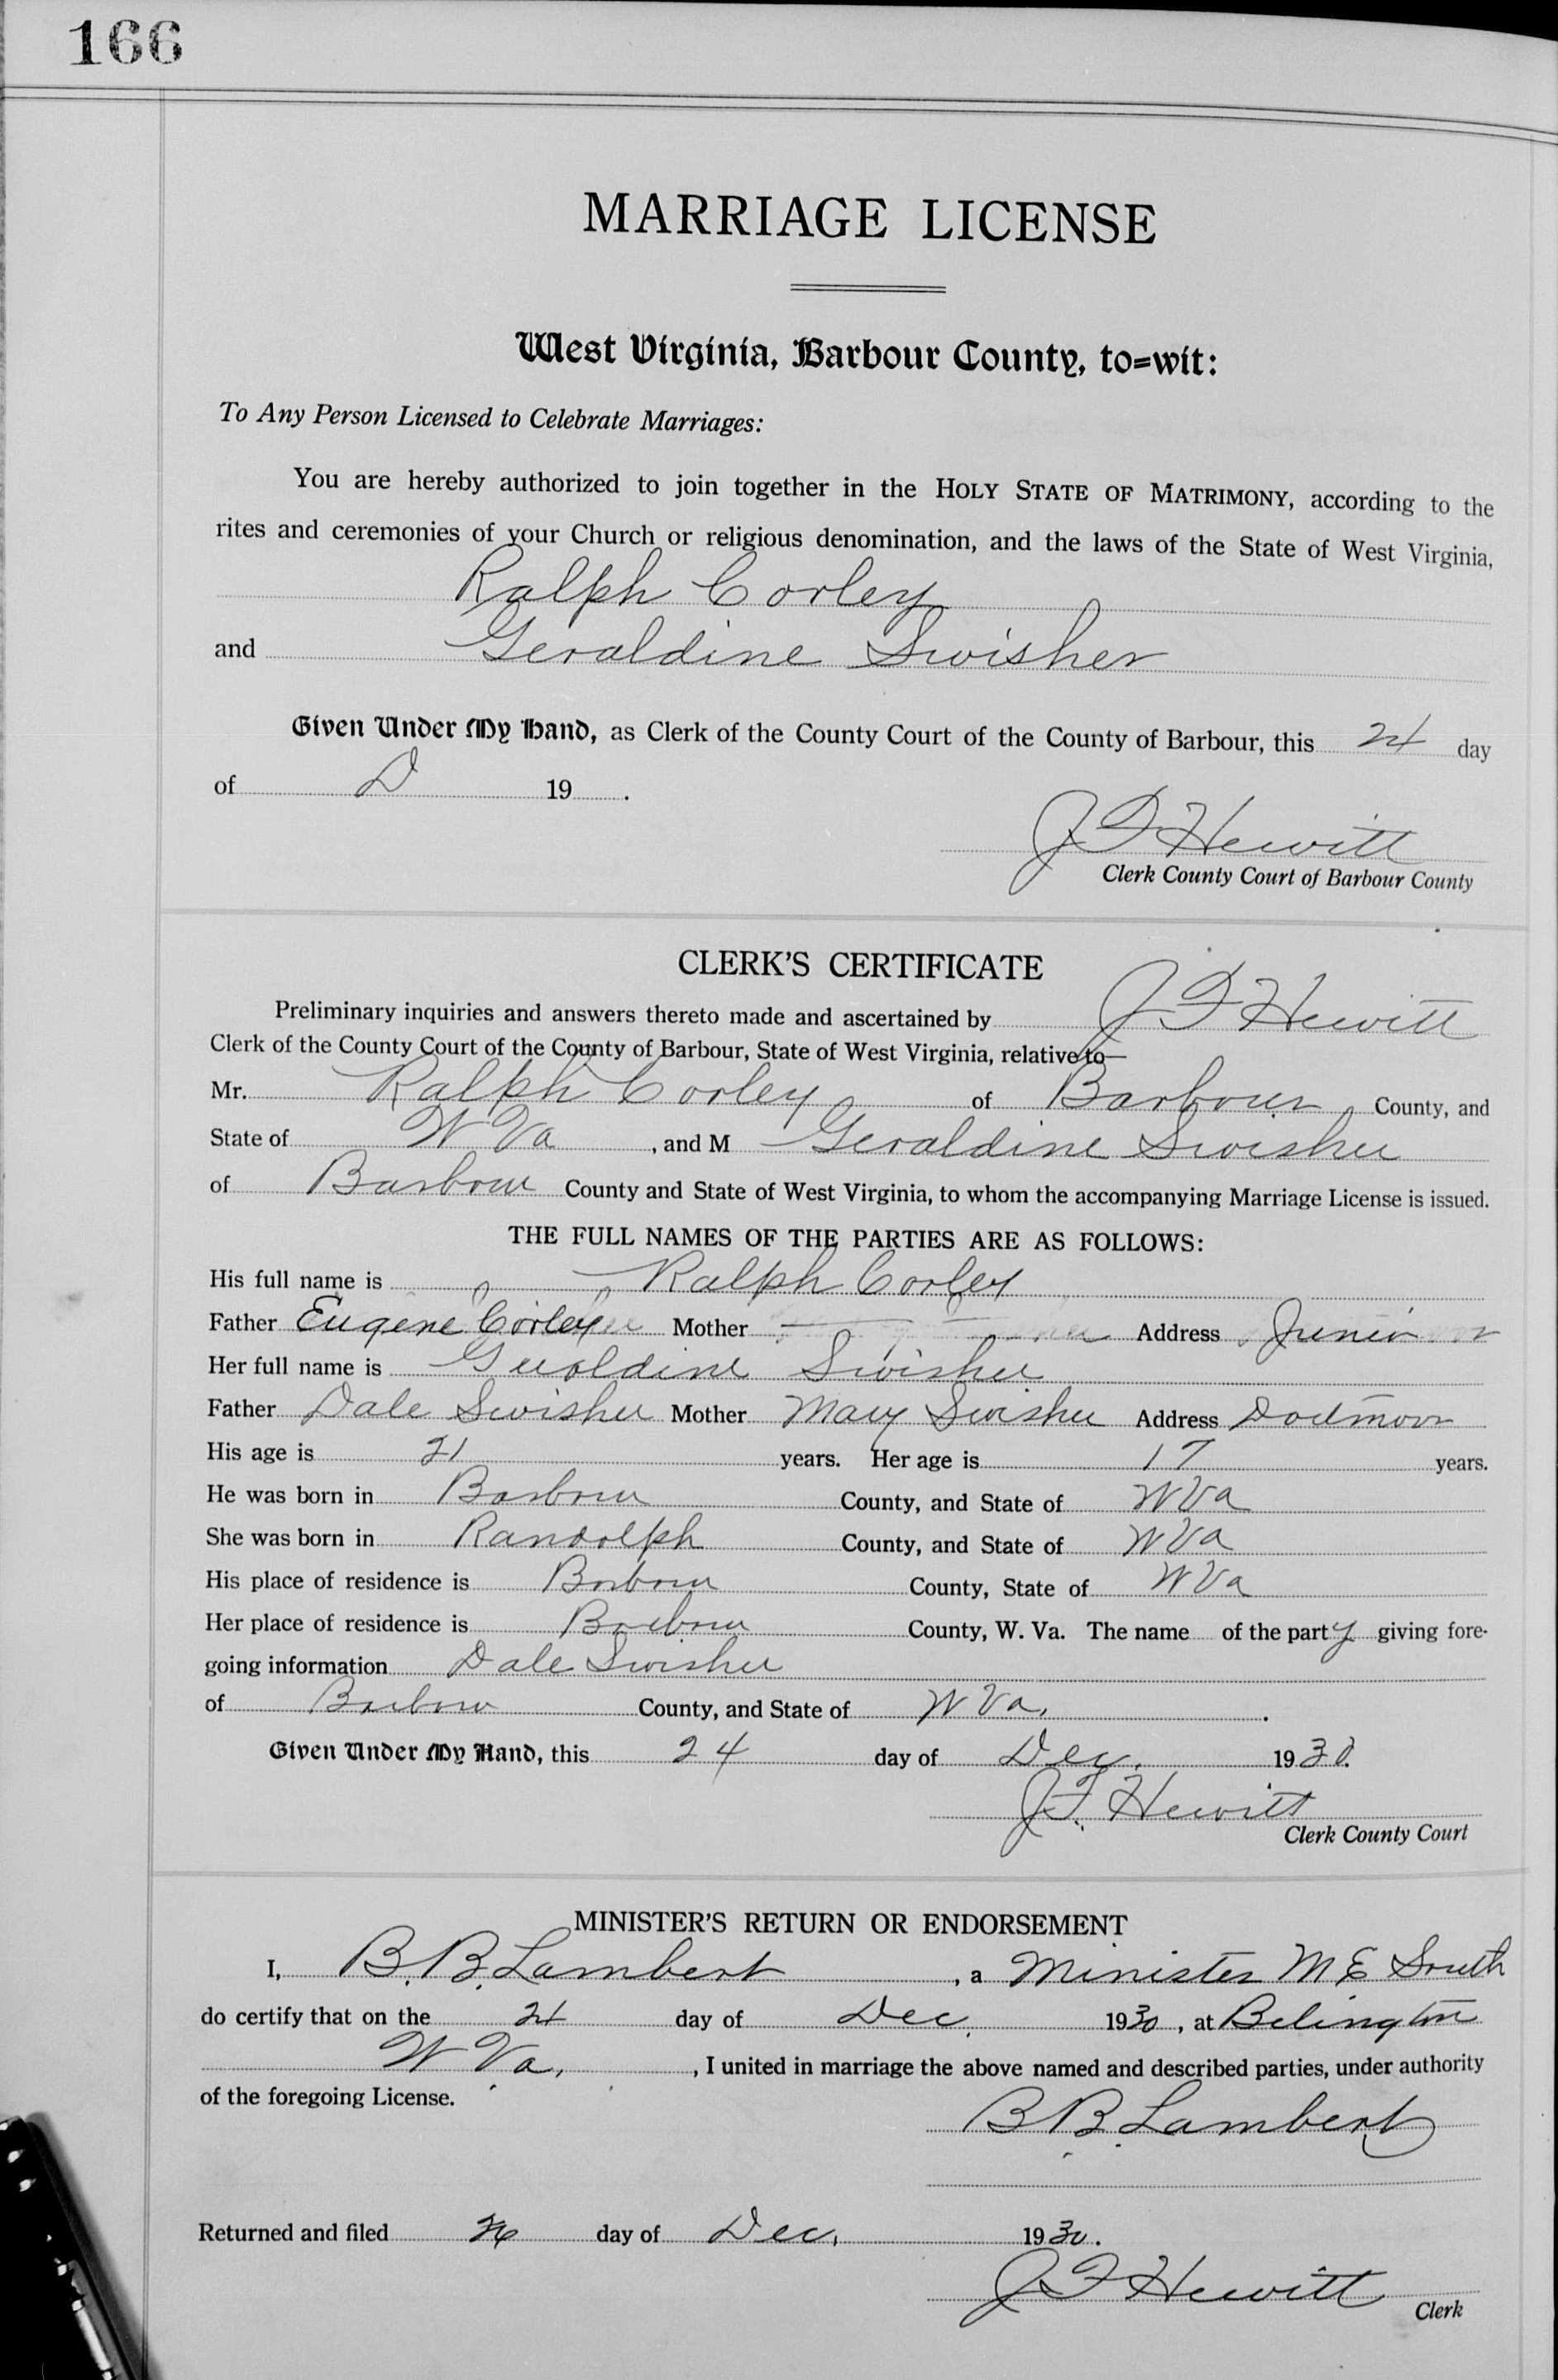 166
MARRIAGE LICENSE
West Virginia, Barbour County, to=wit:
To Any Person Licensed to Celebrate Marriages:
You are hereby authorized to join together in the HOLY STATE OF MATRIMONY, according to the
rites and ceremonies of your Church or religious denomination, and the laws of the State of West Virginia,
Ralph Corley
and Geraldine Swisher
Given Under My Hand, as Clerk of the County Court of the County of Barbour, this 24 day
of D 19 .
J F Hewitt
Clerk County Court of Barbour County
CLERK'S CERTIFICATE
Preliminary inquiries and answers thereto made and ascertained by J F Hewitt
Clerk of the County Court of the County of Barbour, State of West Virginia, relative to—
Mr. Ralph Corley of Barbour County, and
State of W Va , and M Geraldine Swisher
of Barbour County and State of West Virginia, to whom the accompanying Marriage License is issued.
THE FULL NAMES OF THE PARTIES ARE AS FOLLOWS:
His full name is Ralph Corley
Father Eugene Corley Mother — Address Junior
Her full name is Geraldine Swisher
Father Dale Swisher Mother Mary Swisher Address
His age is 21 years. Her age is 17 years.
He was born in Barbour County, and State of W Va
She was born in Randolph County, and State of W Va
His place of residence is Barbour County, State of W Va
Her place of residence is Barbour County, W. Va. The name of the party giving fore-
going information Dale Swisher
of Barbour County, and State of W Va.
Given Under My Hand, this 24 day of Dec. 1930.
J. F. Hewitt
Clerk County Court
MINISTER'S RETURN OR ENDORSEMENT
I, B. B. Lambert , a Minister M E South
do certify that on the 24 day of Dec. 1930 , at Belington
W Va. , I united in marriage the above named and described parties, under authority
of the foregoing License.
B. B. Lambert
Returned and filed 26 day of Dec. 1930.
J F Hewitt
Clerk